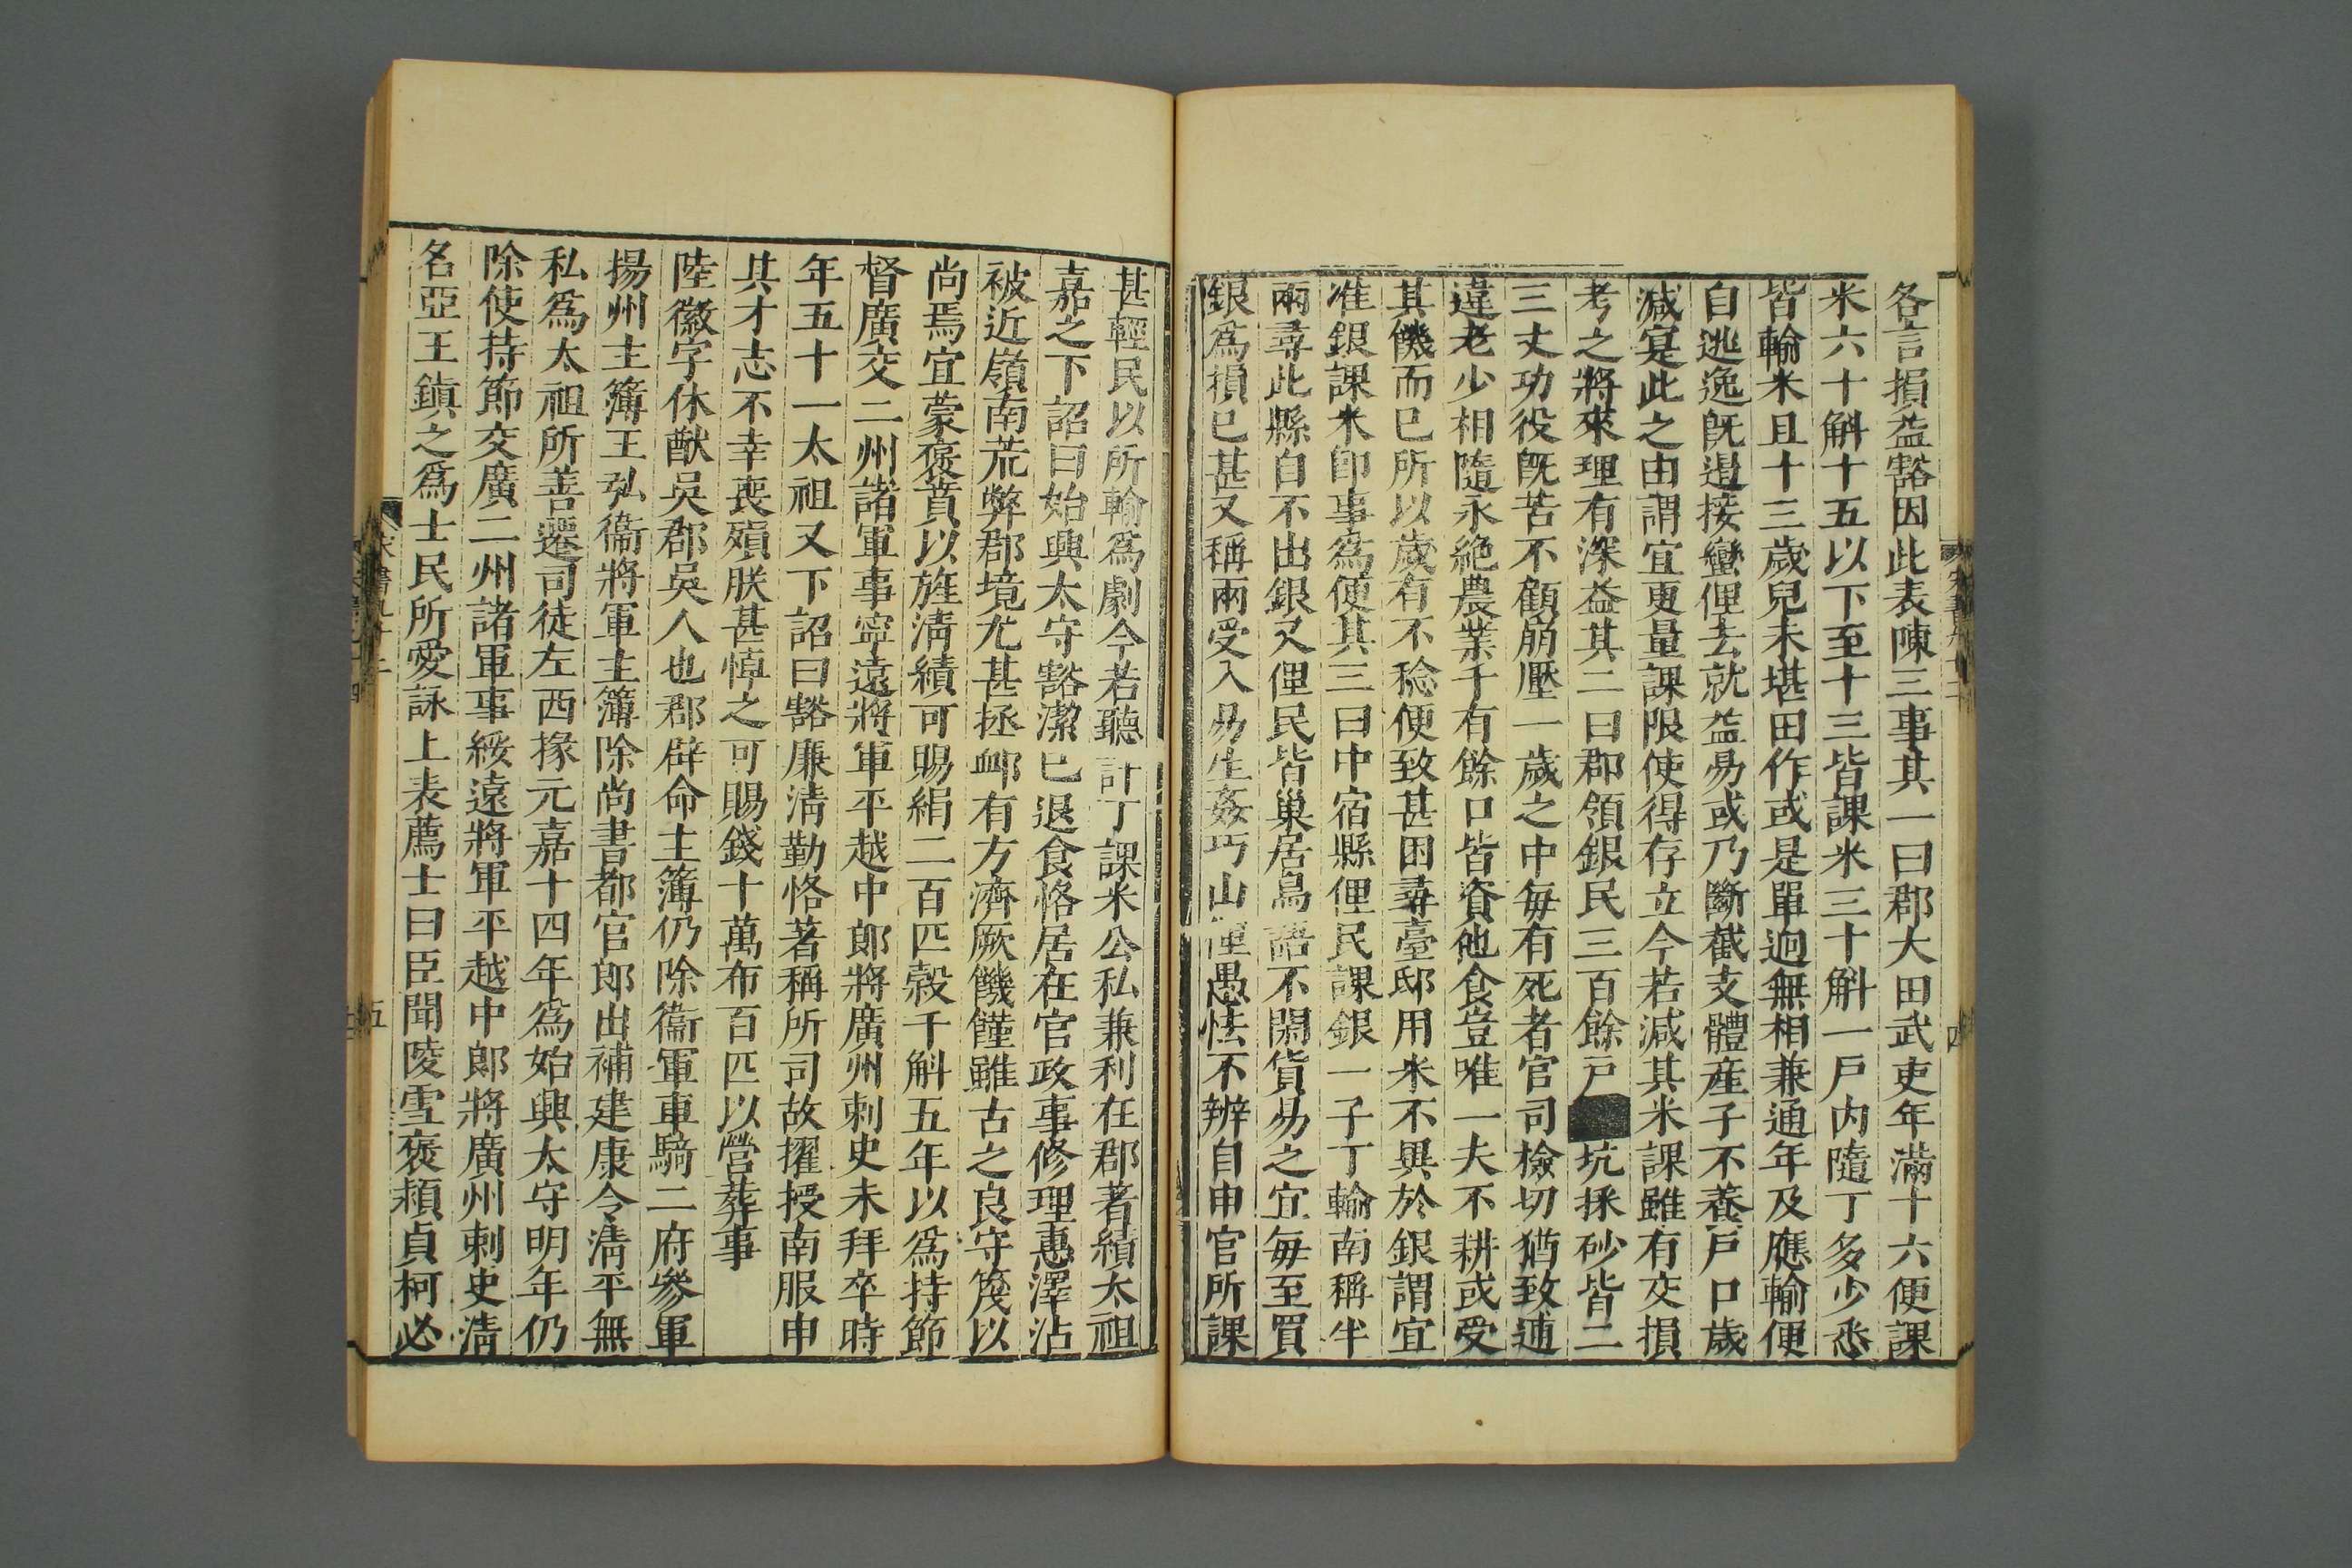 各言損益豁因此表陳三事其一曰郡大田武吏年滿十六便課
米六十斛十五以下至十三皆課米三十斛一戶內隨丁多少悉
皆輸米且十三歲兒未堪田作或是單迥無相兼通年及應輸便
自逃逸旣遏接蠻俚去就益易或乃斷截支體產子不養戶口歲
減寔此之由謂宜更量課限使得存立今若減其米課雖有交損
考之將來理有深益其二曰郡領銀民三百餘戶坑採砂皆二
三丈功役旣苦不顧崩壓一歲之中每有死者官司檢切猶致逋
違老少相隨永絕農業千有餘口皆資他食豈唯一夫不耕或受
其饑而已所以歲有不稔便致甚困尋臺邸用米不異於銀謂宜
准銀課米卽事爲便其三曰中宿縣俚民課銀一子丁輸南稱半
兩尋此縣自不出銀又俚民皆巢居鳥語不閑貨易之宜每至買
銀爲損已甚又稱兩受入易生姦巧山俚愚怯不辨自申官所課
甚輕民以所輸爲劇今若聽計丁課米公私兼利在郡著績太祖
嘉之下詔曰始興太守豁潔已退食恪居在官政事修理惠澤沾
被近嶺南荒弊郡境尤甚拯䘏有方濟厥饑饉雖古之良守篾以
尚焉宜蒙褒賁以旌淸績可賜絹二百匹穀千斛五年以爲持節
督廣交二州諸軍事寧遠將軍平越中郎將廣州刺史未拜卒時
年五十一太祖又下詔曰豁廉淸勤恪著稱所司故擢授南服申
其才志不幸喪殞朕甚悼之可賜錢十萬布百匹以營葬事
陸徽字休猷吳郡吳人也郡辟命主簿仍除衞軍車騎二府參軍
揚州主簿王弘衞將軍主簿除尚書都官郎出補建康令淸平無
私爲太祖所善遷司徒左西掾元嘉十四年爲始興太守明年仍
除使持節交廣二州諸軍事綏遠將軍平越中郎將廣州刺史淸
名亞王鎭之爲士民所愛詠上表薦士曰臣聞陵雪褒穎貞柯必